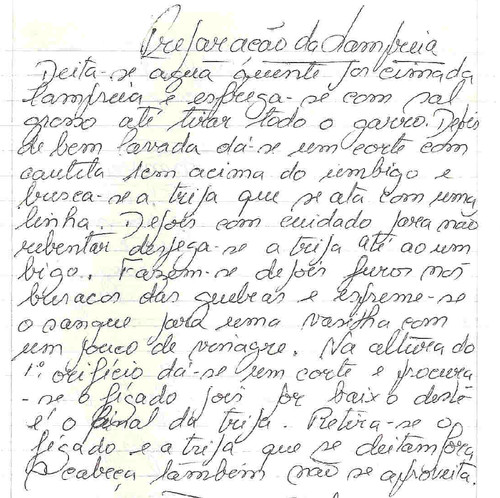 Preparação da Lampreia
Deita-se agua quente por cima da
lampreia e esfrega-se com sal
grosso até tirar todo o garro. Depois
de bem lavada dá-se um corte com
cautela sem acima do umbigo e
busca-se a tripa que se ata com uma
linha. Depois com cuidado para não
rebentar despega-se a tripa até ao um
bigo. Fazem-se depois furos nos
buracos das guelras e espreme-se
o sangue para uma vasilha com
um pouco de vinagre. Na altura do
1º orificio dá-se um corte e procura
-se o figado pois por baixo deste
é o final da tripa. Retira-se o
figado e a tripa que se deitam fora
A cabeça também não se aproveita.